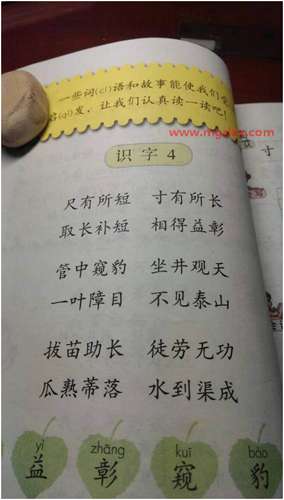 一些词(cí)语和故事能使我们受
启(qǐ)发，让我们认真读一读吧！
www.mg
识字4
尺有所短 寸有所长
取长补短 相得益彰
管中窥豹 坐井观天
一叶障目 不见泰山
拔苗助长 徒劳无功
瓜熟蒂落 水到渠成
yì zhāng kuī bào
益 彰 窥 豹
寸